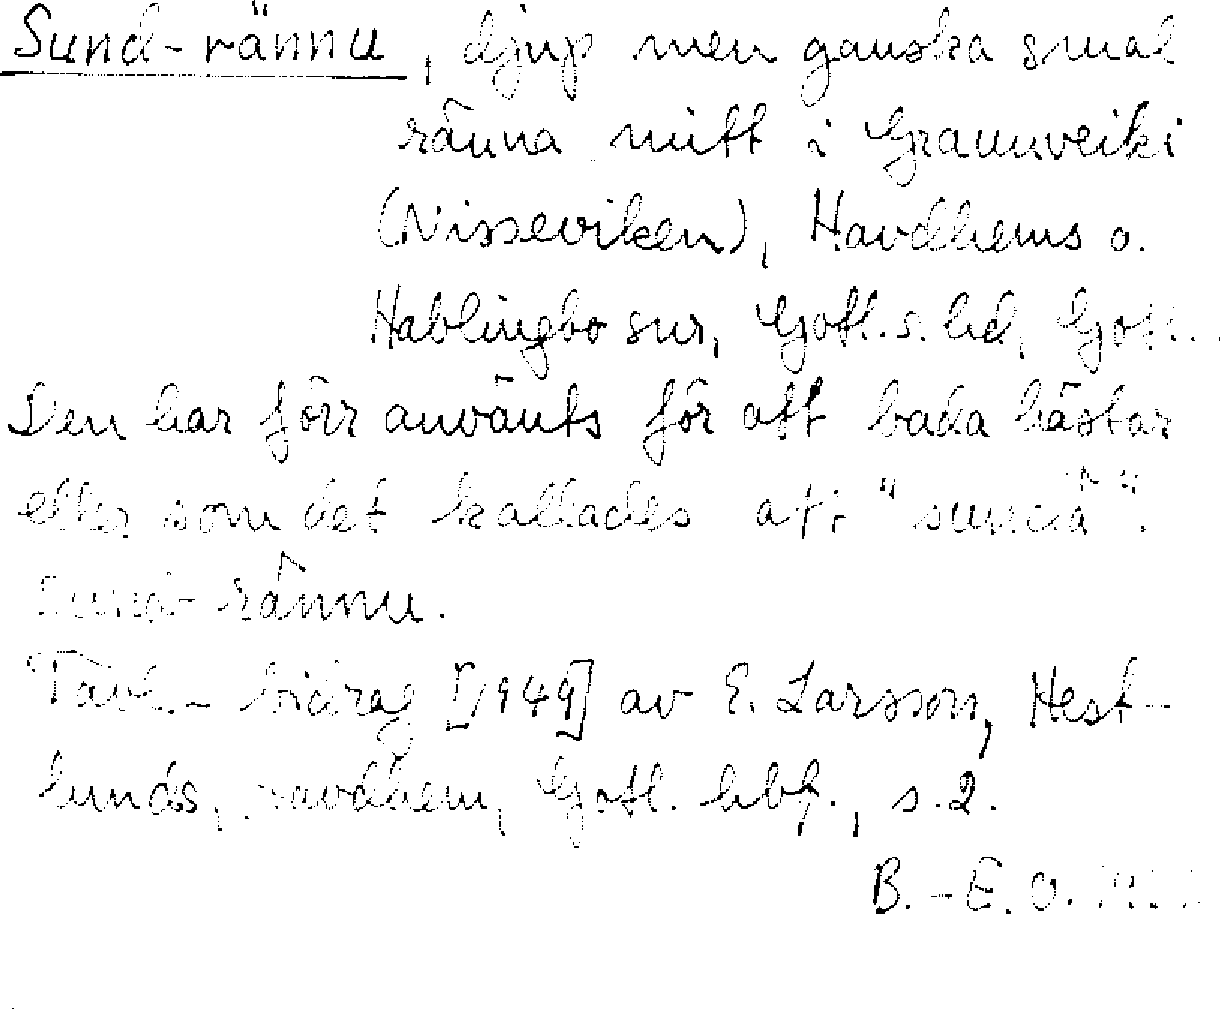 Sund-rännu, djup men ganska smal
ränna mitt i Gramnveiki
(Nisseviken), Havdhems o.
Hablingbo snr, Gotl. s. hd, Gotl.
Den har förr använts för att bada hästar
eller som det kallades att "sundä".
Sund-rännu.
Tävl.-bidrag [1949] av E. Larsson, Hest-
lunds, Havdhem, Gotl. hbf., s. 2.
B.-E. O.